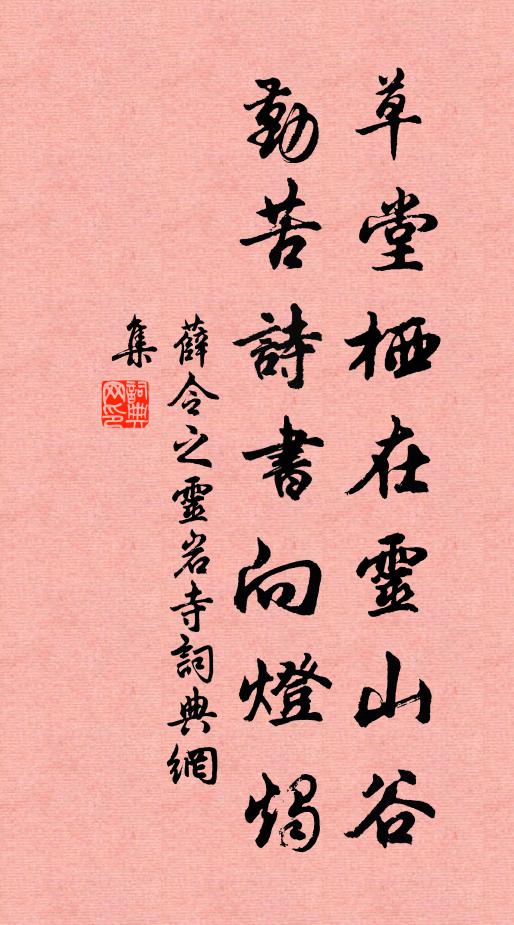 草堂栖在靈山谷
勤苦詩書向燈燭
薛令之靈岩寺詞典網
集
詞典网印